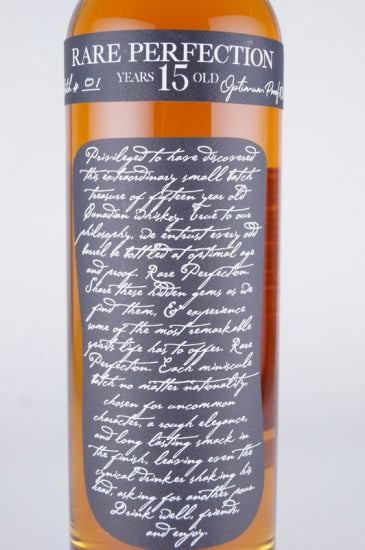 RARE PERFECTION
# 01 YEARS 15 OLD Optimum Proof
Privileged to have discovered
this extraordinary small batch
treasure of fifteen year old
Canadian whiskey. True to our
philosophy, we entrust every odd
barrel be bottled at optimal age
and proof. Rare Perfection.
Share these hidden gems as we
find them, & experience
some of the most remarkable
spirits life has to offer. Rare
Perfection. Each miniscule
batch no matter nationality
chosen for uncommon
character, a rough elegance,
and long lasting smack in
the finish, leaving even the
cynical drinker shaking his
head, asking for another pour.
Drink well, friends,
and enjoy.